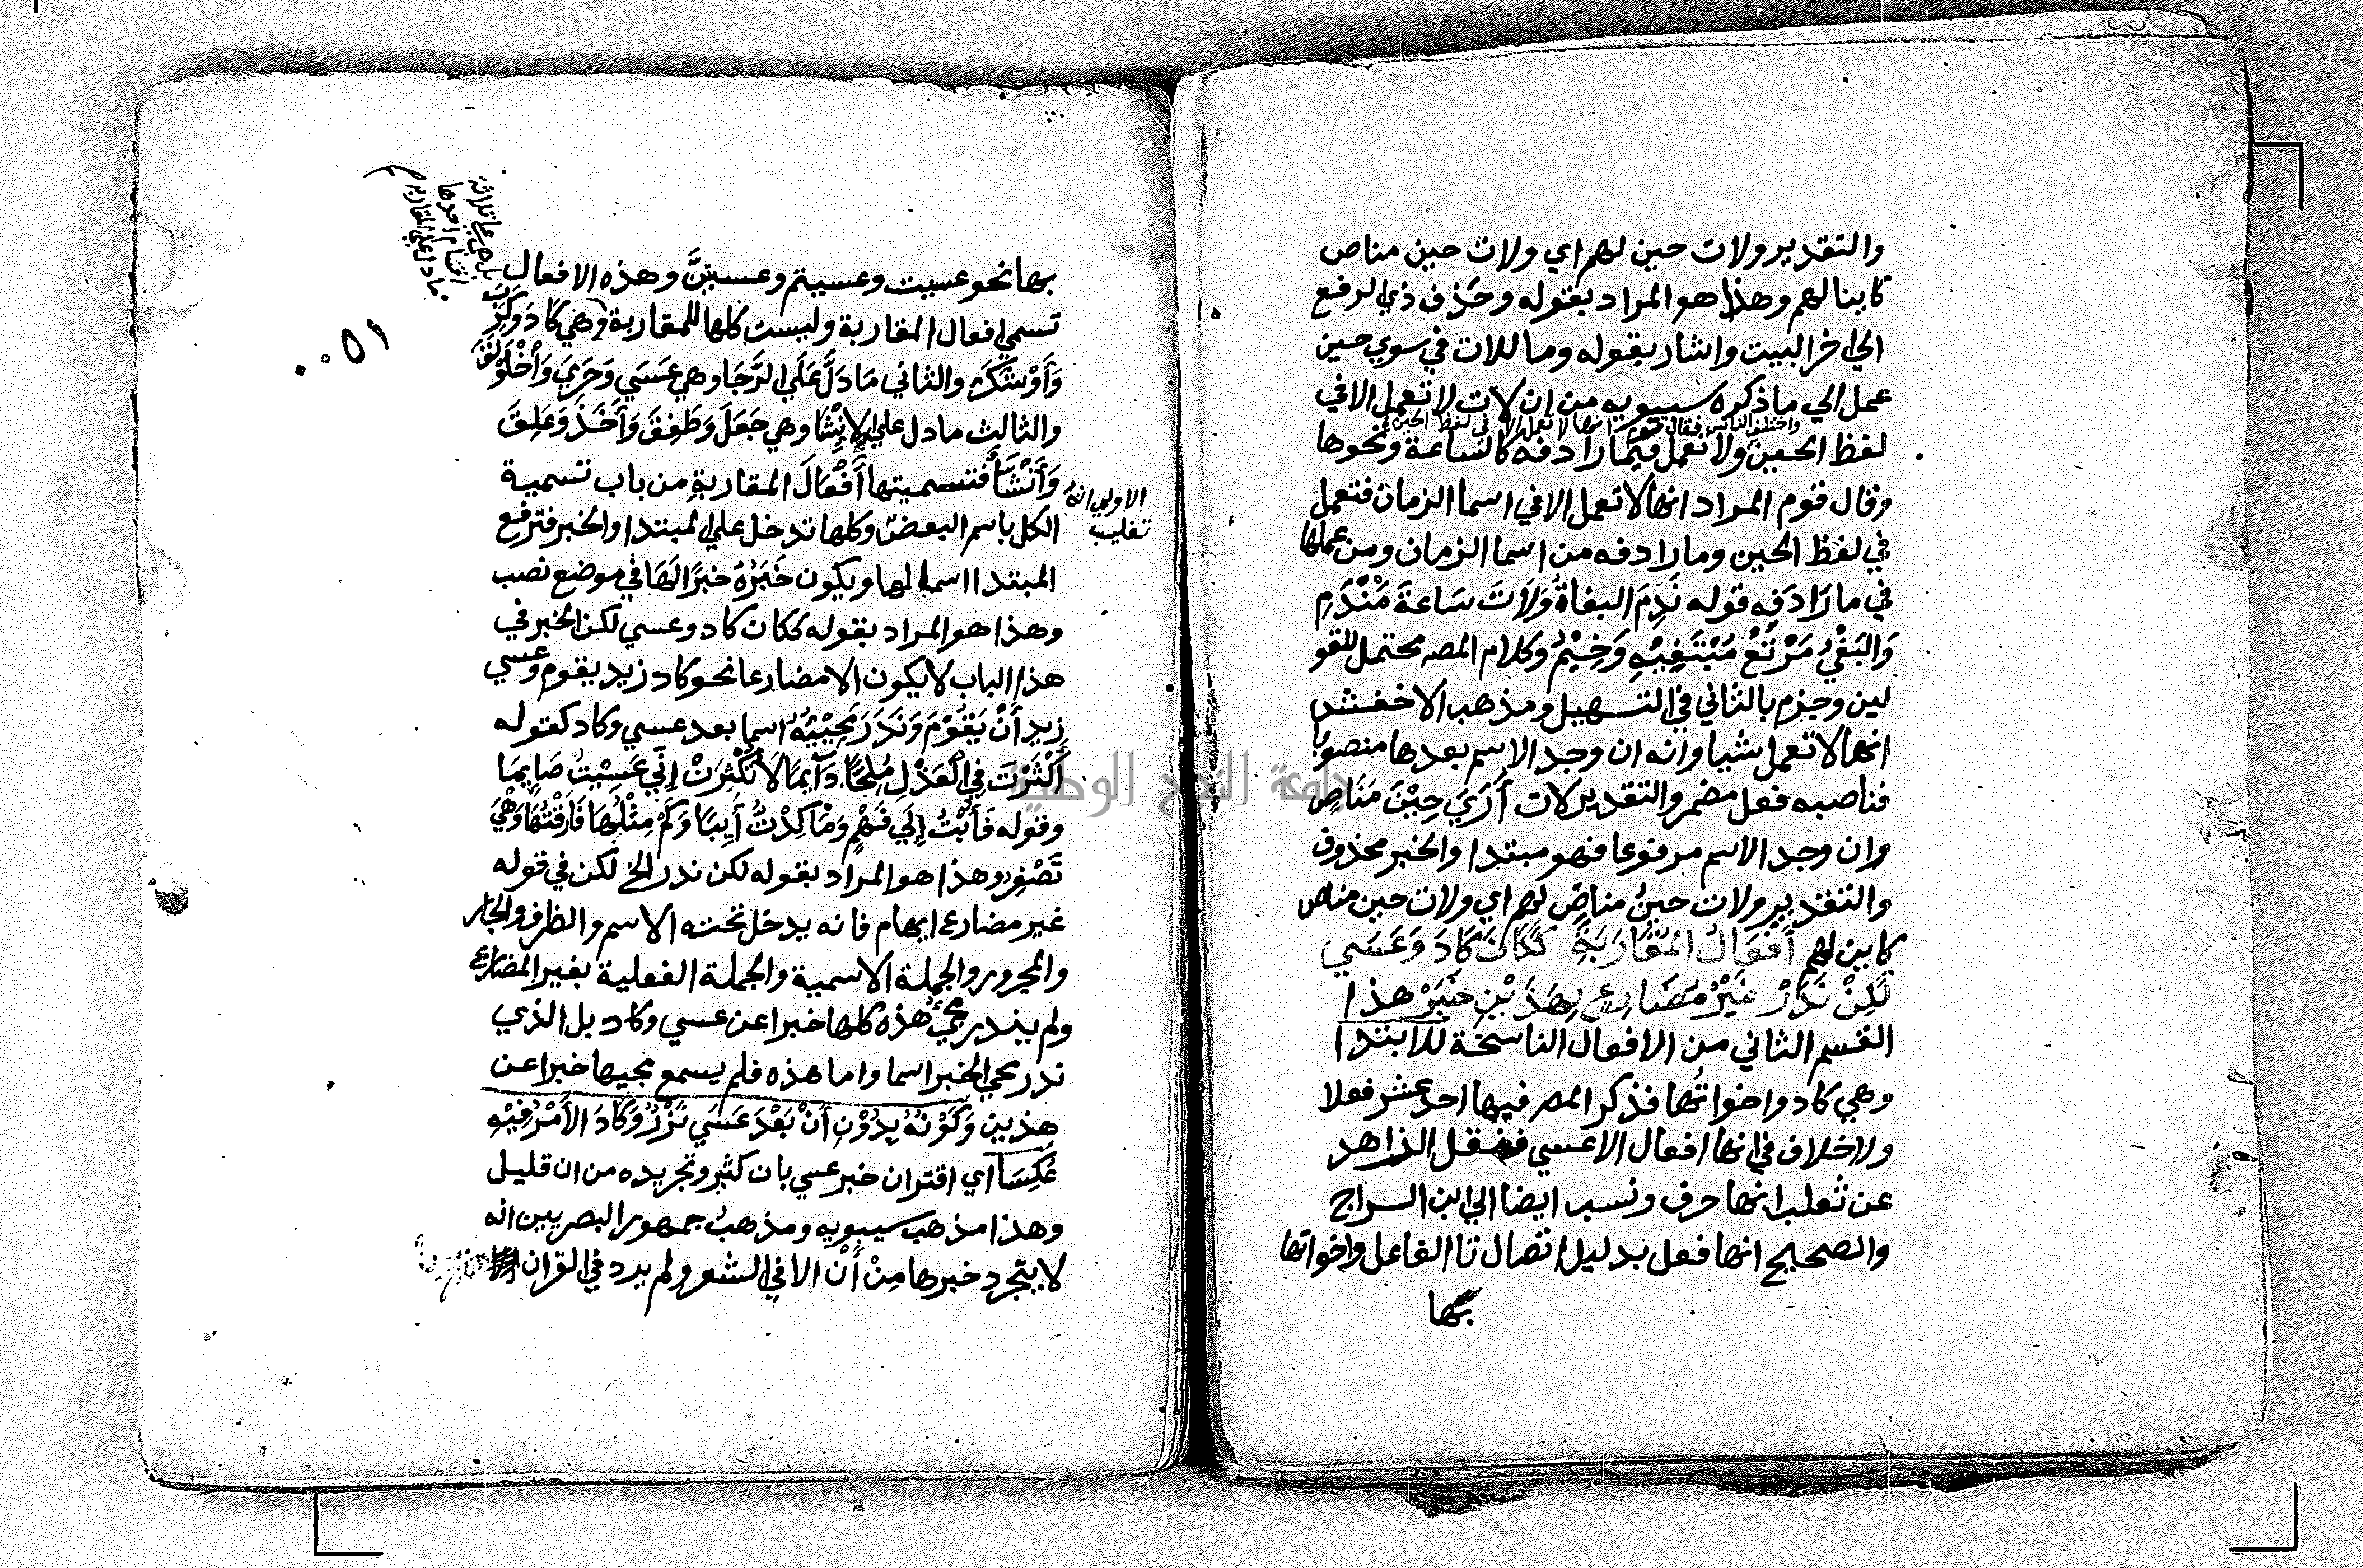 والتقدير ولات حين لهم اي ولات حين مناص
كاينا لهم وهذا هو المراد بقوله وحذف ذي الرفع
الي اخر البيت واشار بقوله وما للات في سوي حين
عمل الي ما ذكره سيبويه من ان لات لا تعمل الا في
واختلف الناس فيه فقال قوم انها لا تعمل الا في لفظ الحين
لفظ الحين ولا تعمل فيما رادفه كالساعة ونحوها
وقال قوم المراد انها لا تعمل الا في اسما الزمان فتعمل
في لفظ الحين وما رادفه من اسما الزمان ومن عملها
في ما رَادَفه قوله نَدِمَ البغاةُ وَلَاتَ سَاعَةَ مَنْدَمِ
وَالبَغْيُ مَرْتَعُ مُبْتَغِيْهِ وَخِيْمُ وكلام المصـ محتمل للقو
لين وجزم بالثاني في التسهيل ومذهب الاخفش
انها لا تعمل شيا وانه ان وجد الاسم بعدها منصوبا
فناصبه فعل مضمر والتقدير لات أَرَي حِيْنَ مَنَاصٍ
وان وجد الاسم مرفوعا فهو مبتدا والخبر محذوف
والتقدير ولات حينُ مناصٍ لهم اي ولات حين مناص
كاين لهم أَفْعَالُ المُقَارَبَةِ كَكَانَ كَادَ وَعَسَي
لَكِنْ نَدَرْ غَيْرُ مُضَارِعٍ لِهَذَيْنِ خَبَرْ هذا
القسم الثاني من الافعال الناسخة للابتدا
وهي كاد واخواتُها فذكر المصـ فيها احد عشر فعلا
ولا خلاف في انها افعال الا عسي فنقل الزاهد
عن ثعلب انها حرف ونسب ايضا الي ابن السراج
والصحيح انها فعل بدليل اتصال تا الفاعل واخواتها
بها
بل هي علي ثلاثة
اقسام احدها
ما دل علي المقاربه
٠٠٥١
بها نحو عسيت وعسيتم وعسيتنَّ وهذه الافعال
تسمي افعال المقاربة وليست كلها للمقاربة وهي كَادَ وَكَرَبَ
وَأَوْشَكَ والثاني مَا دَلَّ عَلَي الرَّجَا وهي عَسَي وَحَرَي وَاخْلَوْلَقَ
والثالث ما دل علي الإِنْشَا وهي جَعَلَ وَطَفِقَ وَأَخَذَ وَعَلِقَ
وَأَنْشَأَ فتسميتها أَفْعَالَ المقاربةِ من باب تسمية
الاولي انه
تغليب
الكل باسم البعض وكلها تدخل علي المبتدا والخبر فترفع
المبتدا اسما لها ويكون خَبَرُهُ خبرًا لَهَا في موضع نصب
وهذا هو المراد بقوله ككان كاد وعسي لكن الخبر في
هذا الباب لا يكون الا مضارعا نحو كاد زيد يقوم وعسي
زيد أَنْ يَقُوْمَ وَنَدَرَ مَجِيْئُهُ اسما بعد عسي وكاد كقوله
أَكْثَرْتَ فِي الْعَذْلِ مُلِحًّا دَآيِمَا لَا تُكْثِرَنْ إِنِّي عَسِيْتُ صَايِمَا
وقوله فَأُبْتُ إِلَي فَهْمٍ وَمَا كِدْتُ أَيِبًا وَكَمْ مِثْلُهَا فَارَقْتُهَا وَهْيَ
تَصْفِرُ وهذا هو المراد بقوله لكن ندر الخ لكن في قوله
غير مضارع ايهام فانه يدخل تحته الاسم والظرف والجار
والمجرور والجملة الاسمية والجملة الفعلية بغير المضارع
ولم يندر مجيُ هذه كلها خبرا عن عسي وكاد بل الذي
ندر مجي الخبر اسما واما هذه فلم يسمع مجيها خبرا عن
هذين وَكَوْنُهُ بِدُوْنِ أَنْ بَعْدَ عَسَي نَزْرٌ وَكَادَ الأَمْرُ فِيْهِ
عُكِسَا اي اقتران خبر عسي بان كثير وتجريده من ان قليل
وهذا مذهب سيبويه ومذهبُ جمهور البصريين انه
لا يتجرد خبرها مِنْ أَنْ الا في الشعر ولم يرد في القران
جامعة النجاح الوطنية